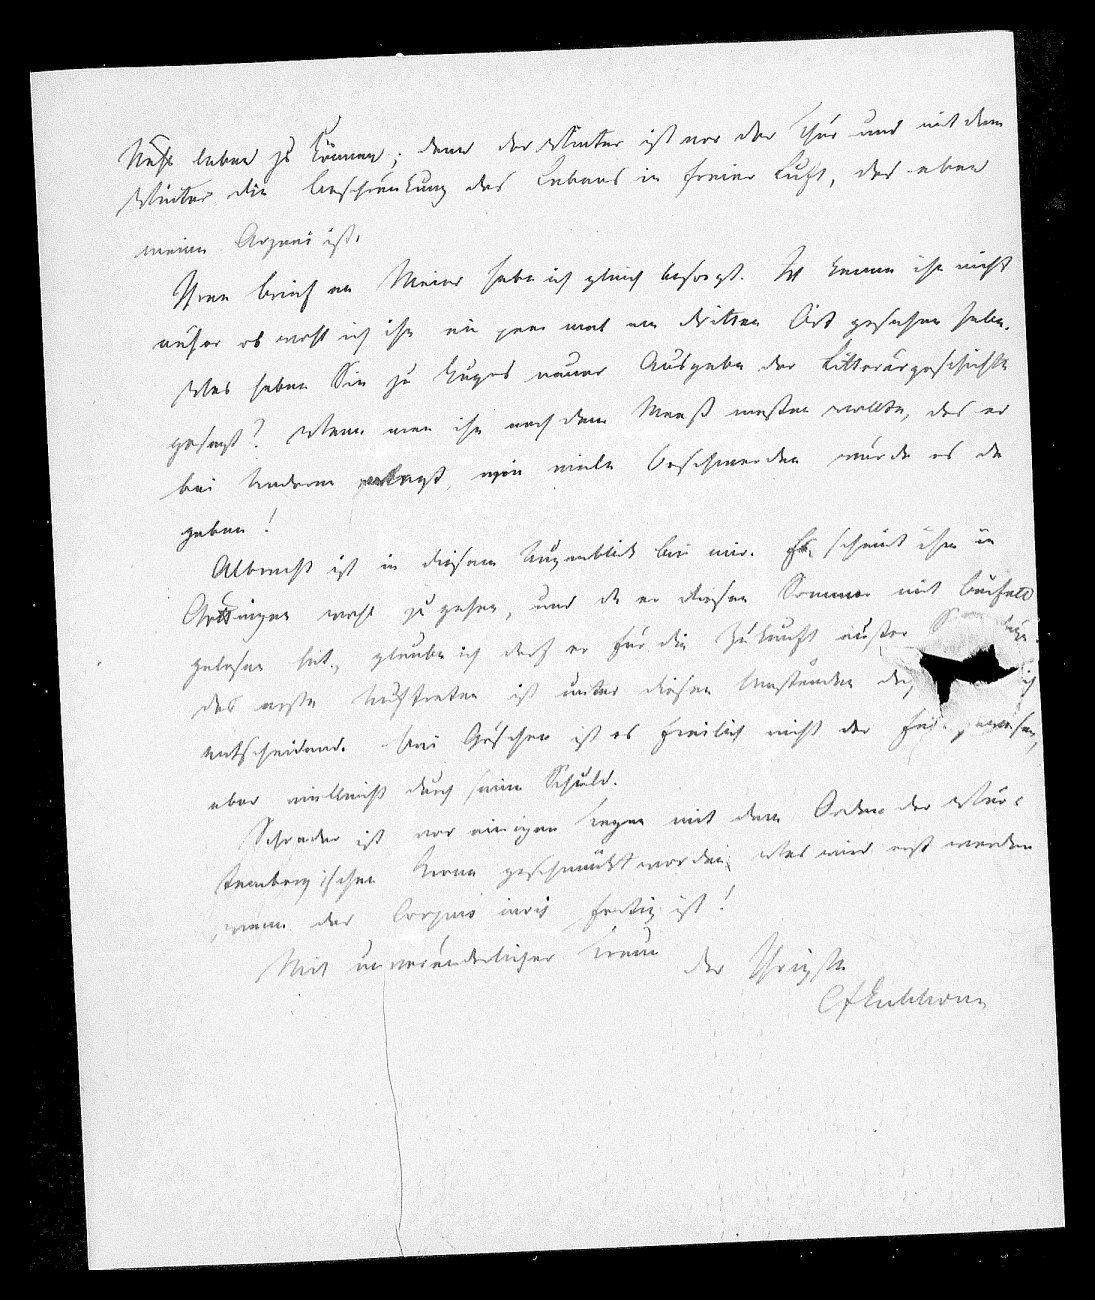 Ruhe leben zu können; denn der Winter ist vor der Thür und mit dem
Winter die Beschränkung des Lebens in freier Luft, das eben
meine Arznei ist.
Ihren Brief an Meier habe ich gleich besorgt. Ich kenne ihn nicht
näher ob wohl ich ihn ein paar mal am dritten Ort gesehen habe.
Was haben Sie zu Hugos neuer Ausgabe der Litterärgeschichte
gesagt? Wenn man ihn nach dem Maaß messen wollte, das er
bei Anderen anlegt, wie viele Beschwerden würde es da
geben!
Albrecht ist in diesem Augenblick bei mir. Es scheint ihm in
Göttingen wohl zu gehen, und da er diesen Sommer mit Beifall
gelesen hat, glaube ich darf er für die Zukunft außer
das erste Auftreten ist unter diesen Umständen
entscheidend. Bei Göschen ist es freilich nicht der Fall gewesen,
aber vielleicht durch seine Schuld.
Schrader ist vor einigen Tagen mit dem Orden der Wür-
tembergischen Krone geschmückt worden. Was wird erst werden
wenn das Corpus iuris fertig ist!
Mit unveränderlicher Treue der Ihrigste
CFEichhorn